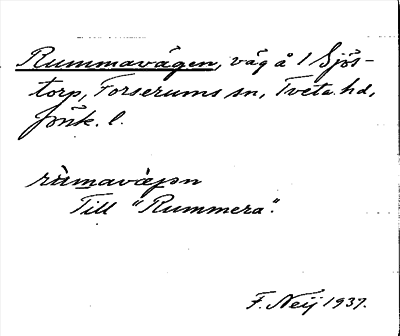 Rummavägen, väg å 1 Sjös-
torp, Forserums sn, Tveta hd,
Jönk. l.
rùmavàgɘn
Till "Rummera".
F. Neij 1937.